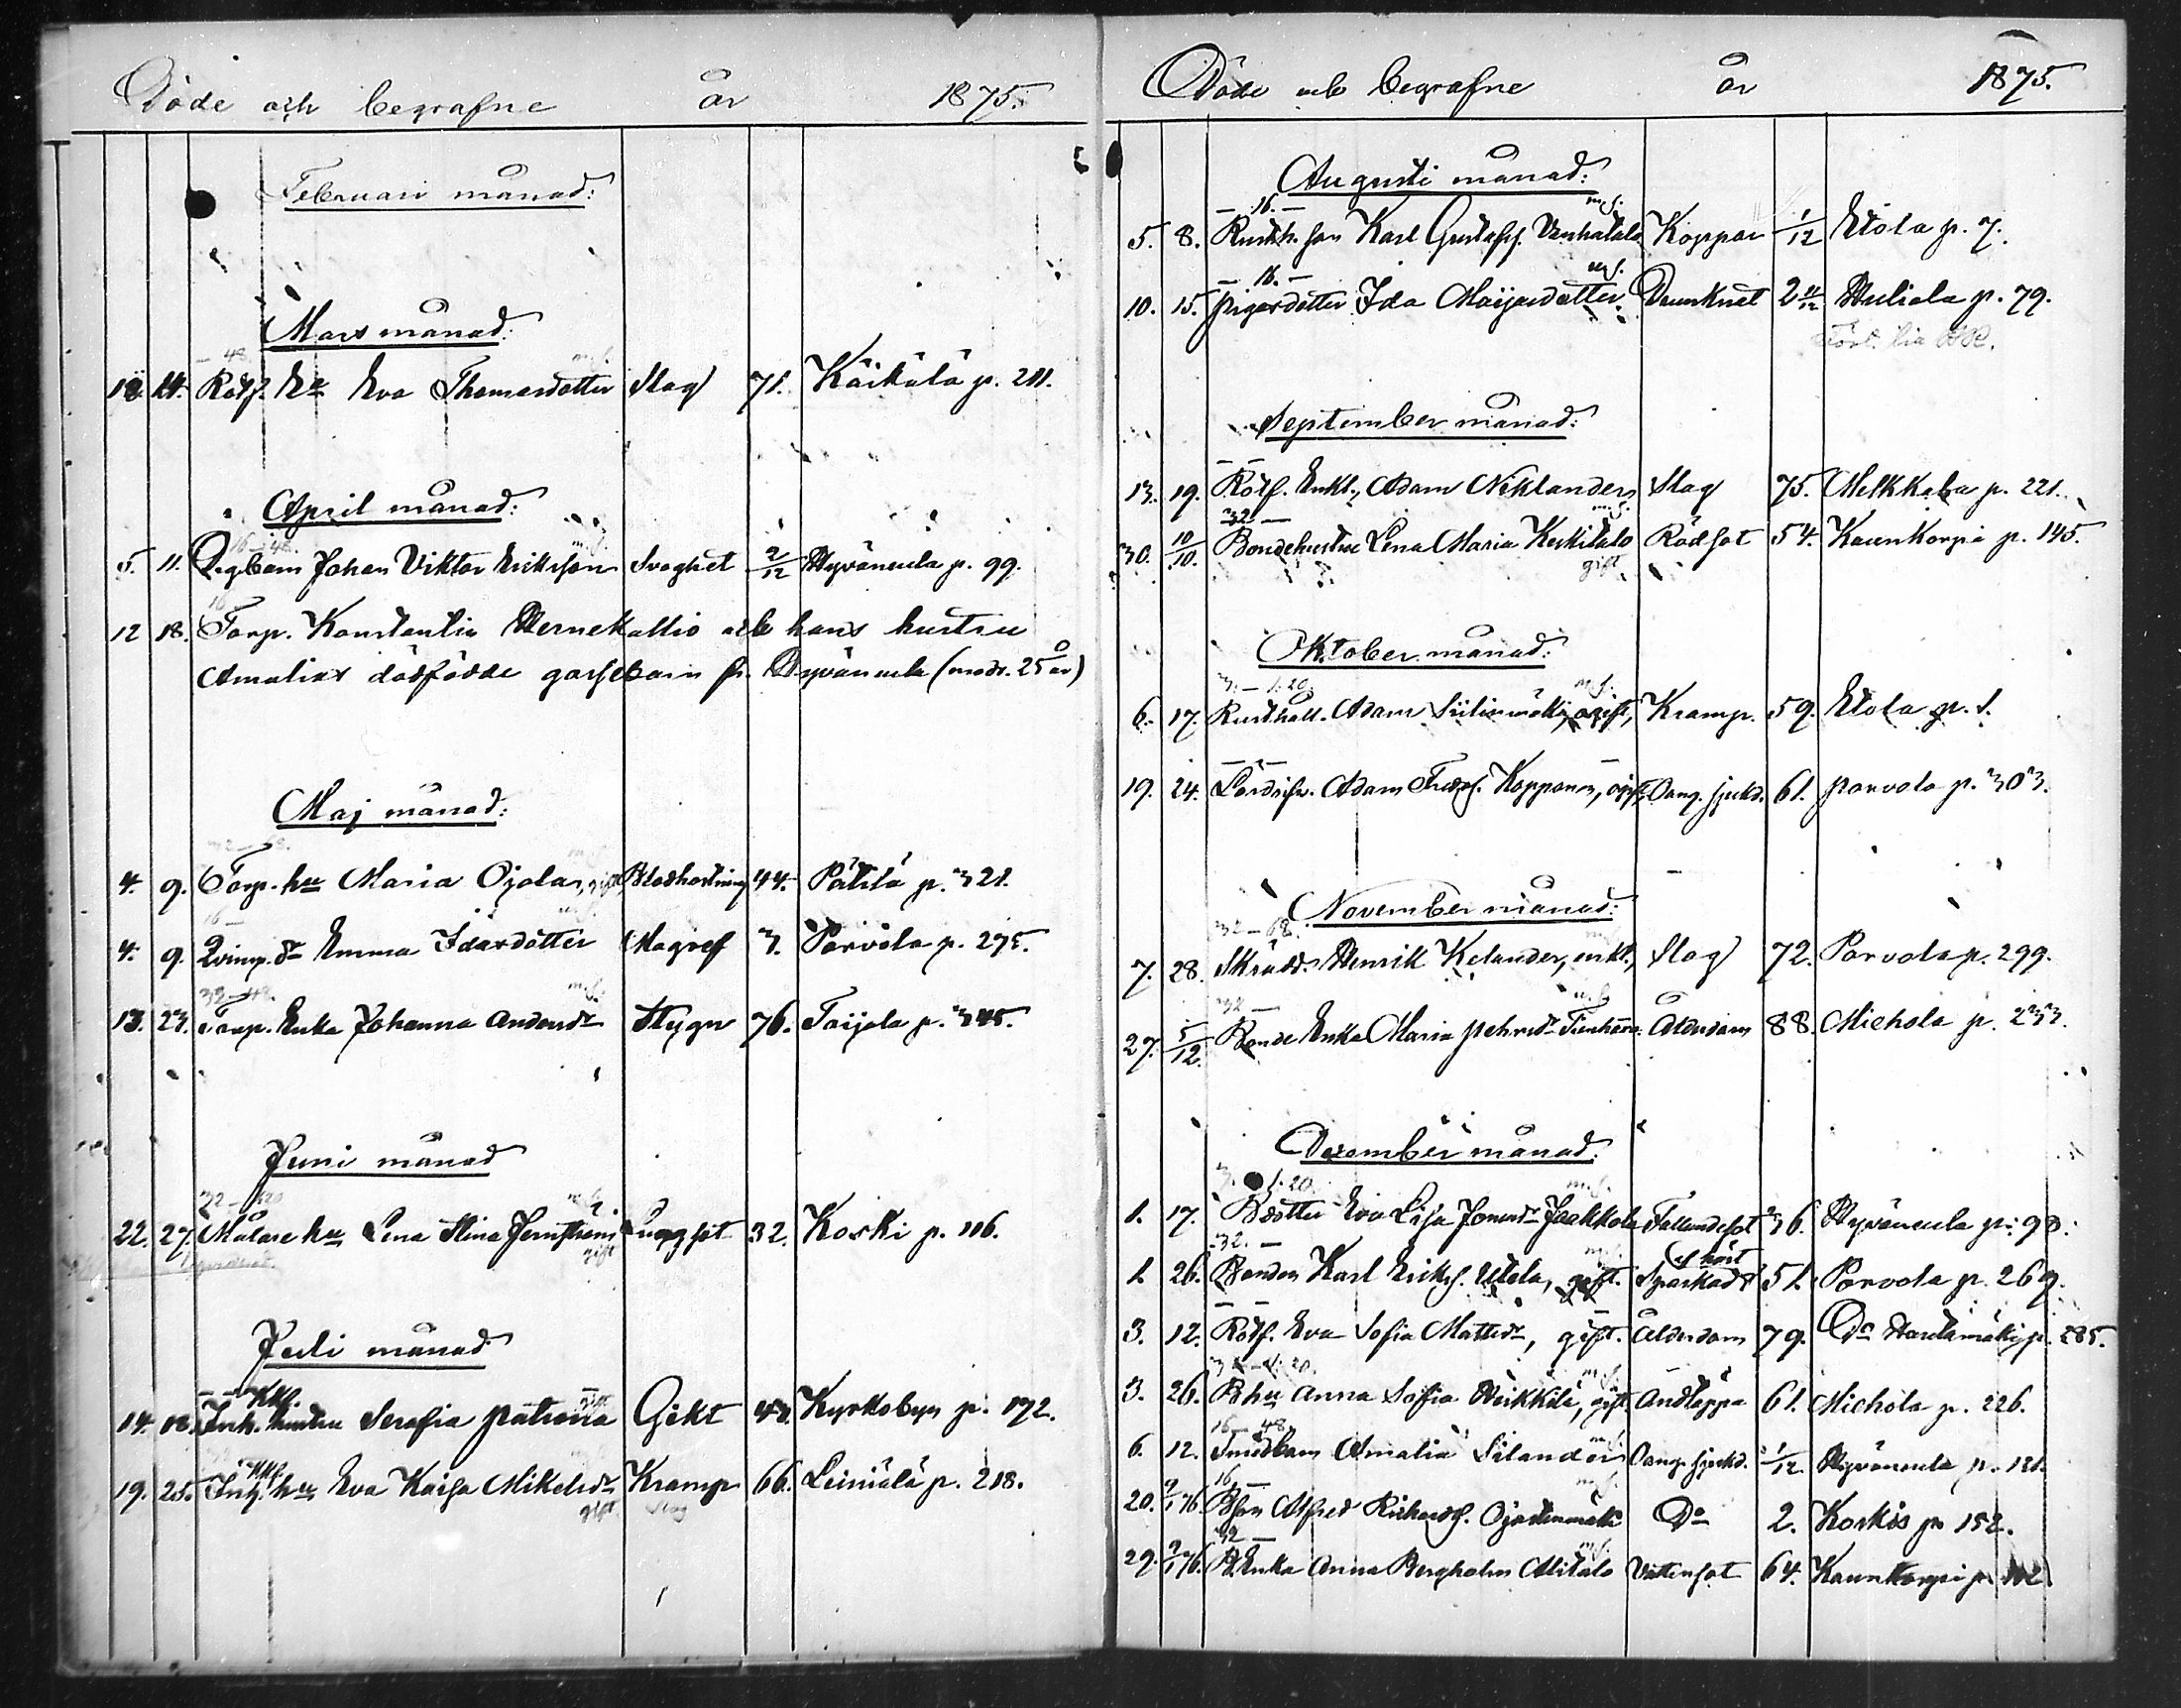 Döde och begrafne år 1875.
Februari månad:
Mars månad:
– 48 m.f.
14. Rotf. Ea Eva Thomasdotter Slag 71. Käikälä p. 211.
April månad:
16–48. m.f.
5. 11. Dgbarn Johan Viktor Eriksson Svaghet 2/12 Hyväneula p. 99.
16
12 18. Torp. Konstantin Hernekallio och hans hustru
Amalias dödfödde gossebarn fr. Hyväneula (modr. 25 år)
Maj månad:
4. 9. Torp. hu Maria Ojala, gift, Blodhostning 44. Pätilä p. 321.
16 –
4. 9. Qvinsp. dr Emma Idasdotter Magref 3. Porvola p. 275.
32–48. m.f.
13. 23. Torp. Enka Johanna Andersdr Stygn 76. Toijola p. 345.
Juni månad
m.f.
22. 27. Målare hu Lena Stina Jernström Lungsot 32. Koski p. 116.
gift
Juli månad
KKf. gift
14. 18. Inh. hustru Serafia Patiena Gikt 43. Kyrkobyn p. 172.
KKf.
19. 25. Inh. hu Eva Kaisa Mikelsdr Kramp 66. Leiniälä p. 218.
gift Slag
Döde och begrafne år 1875.
Augusti månad:
– 16. – m.f.
5. 8. Rusth. son Karl Gustafss. Vanhatalo Koppor 1/12 Etola p. 7.
– 16. – m.f.
10. 15. Pigasdotter Ida Maijasdotter Drunknat 2 11/12 Huljala p. 79.
September månad:
– –
13. 19. Rotf. Enkl., Adam Niklander Slag 75. Melkkola p. 221.
32 – m.f.
30. 10/10. Bondehustru Lena Maria Keskitalo Rödsot 54. Kaunkorpi p. 145.
gift
Oktober månad:
3: – 1: 20. m.f.
6. 17. Rusthåll. Adam Siilinmäki, ogift, Kramp. 59. Etola p. 1.
19. 24. Lösdrifv. Adam Fredrs. Kopponen, ogift, Oang. sjukd. 61. Parvola p. 303.
November månad:
32–68.
7. 28. Skrädd. Henrik Kelander, enkl., Slag 72. Porvola p. 299.
32 – m.f.
27. 5/12. Bonde Enka Maria Pehrsdr Tienhaara Ålderdom 88. Miehola p. 233.
December månad.
3. 1: 20. m.f.
1. 17. Bdotter Eva Lisa Jonasdr Jaakkola Fallandesot 36. Hyväneula p. 93.
32. – m.f.
1. 26. Bonden Karl Eriks. Utola, gift. Sparkad af häst 51. Porvola p. 269.
3. 12. Rotf. Eva Sofia Mattsdr, gift. Ålderdom 79. Do Hautamäki p. 285.
32–1: 20. m.f.
3. 26. B hu Anna Sofia Heikkilä, gift. Andtäppa 61. Miehola p. 226.
16–48. m.f.
6. 12. Smedbarn Amalia Silander Oang. sjukd. 1/12 Hyväneula p. 121.
16 – m.f.
20. 9/1 76. Bson Alfred Richards. Ojastenmäki Do 2. Koskis p. 152.
32 – m.f.
29. 9/1 76. B. Enka Anna Bergholm Alitalo Vattensot 64. Kaunkorpi p. 142.